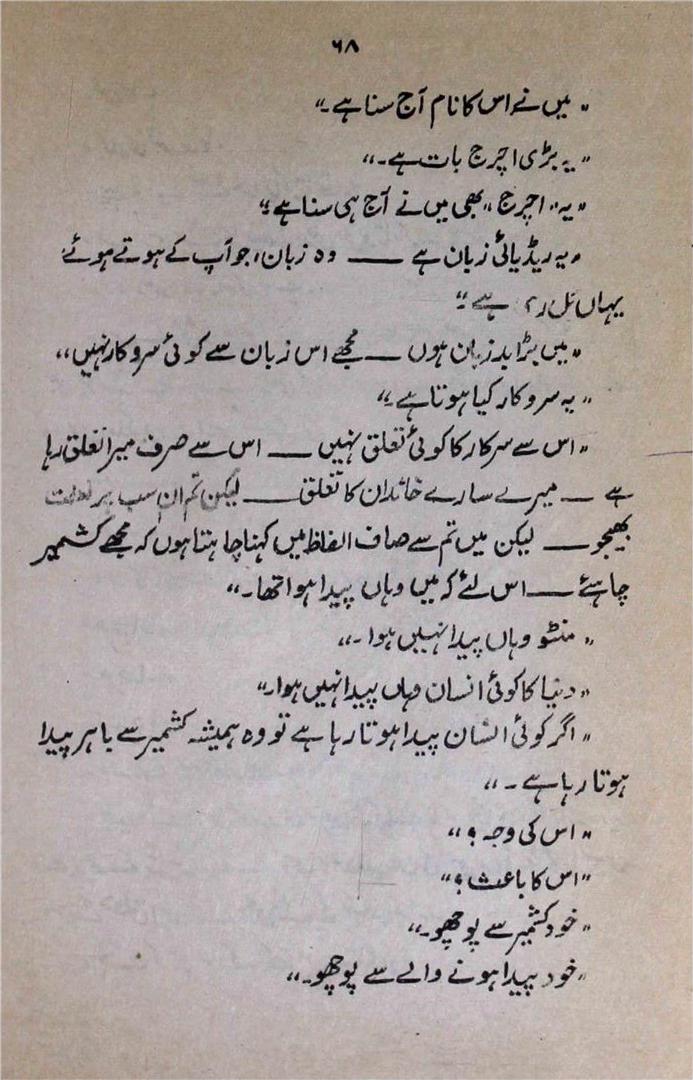 ۶۸
"میں نے اس کا نام آج سنا ہے۔"
"یہ بڑی اچرج بات ہے۔"
"یہ "اچرج" بھی میں نے آج ہی سنا ہے"
"یہ ریڈیائی زبان ہے —— وہ زبان، جو آپ کے ہوتے ہوئے
یہاں ہے"
"میں بڑا بدزبان ہوں —— مجھے اس زبان سے کوئی سروکار نہیں"
"یہ سروکار کیا ہوتا ہے۔"
"اس سے سرکار کا کوئی تعلق نہیں —— اس سے صرف میرا تعلق رہا
ہے —— میرے سارے خاندان کا تعلق —— لیکن تم ان سب پر لعنت
بھیجو —— لیکن میں تم سے صاف الفاظ میں کہنا چاہتا ہوں کہ مجھے کشمیر
چاہئے —— اس لئے کہ میں وہاں پیدا ہوا تھا۔"
"منٹو وہاں پیدا نہیں ہوا۔"
"دنیا کا کوئی انسان وہاں پیدا نہیں ہوا۔"
"اگر کوئی انسان پیدا ہوتا رہا ہے تو وہ ہمیشہ کشمیر سے باہر پیدا
ہوتا رہا ہے۔"
"اس کی وجہ؟"
"اس کا باعث؟"
"خود کشمیر سے پوچھو۔"
"خود پیدا ہونے والے سے پوچھو۔"